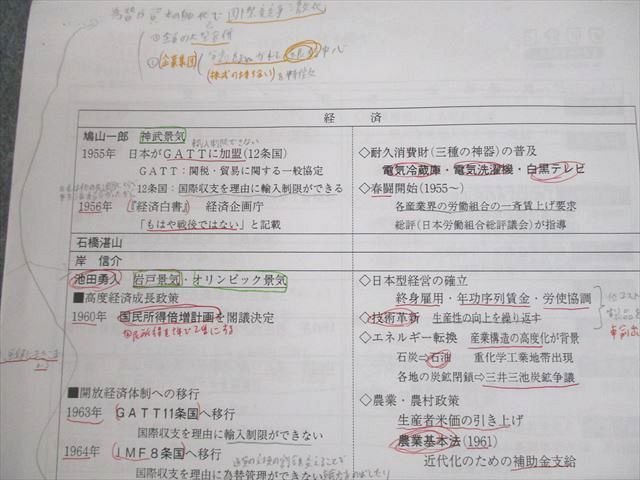 為替や資本の自由化で国際競争が激化
企業集団
(株式の持ち合い)
経　済
鳩山一郎　神武景気
輸入制限できない
1955年　日本がGATTに加盟(12条国)
GATT：関税・貿易に関する一般協定
12条国：国際収支を理由に輸入制限ができる
1956年　『経済白書』　経済企画庁
「もはや戦後ではない」と記載
◇耐久消費財(三種の神器)の普及
電気冷蔵庫・電気洗濯機・白黒テレビ
◇春闘開始(1955〜)
各産業界の労働組合の一斉賃上げ要求
総評(日本労働組合総評議会)が指導
石橋湛山
岸　信介
池田勇人　岩戸景気・オリンピック景気
■高度経済成長政策
1960年　国民所得倍増計画を閣議決定
国民所得を
■開放経済体制への移行
1963年　GATT11条国へ移行
国際収支を理由に輸入制限ができない
1964年　IMF8条国へ移行
国際収支を理由に為替管理ができない
◇日本型経営の確立
終身雇用・年功序列賃金・労使協調
◇技術革新　生産性の向上を繰り返す
◇エネルギー転換　産業構造の高度化が背景
石炭→石油　重化学工業地帯出現
各地の炭鉱閉鎖→三井三池炭鉱争議
◇農業・農村政策
生産者米価の引き上げ
農業基本法(1961)
近代化のための補助金支給